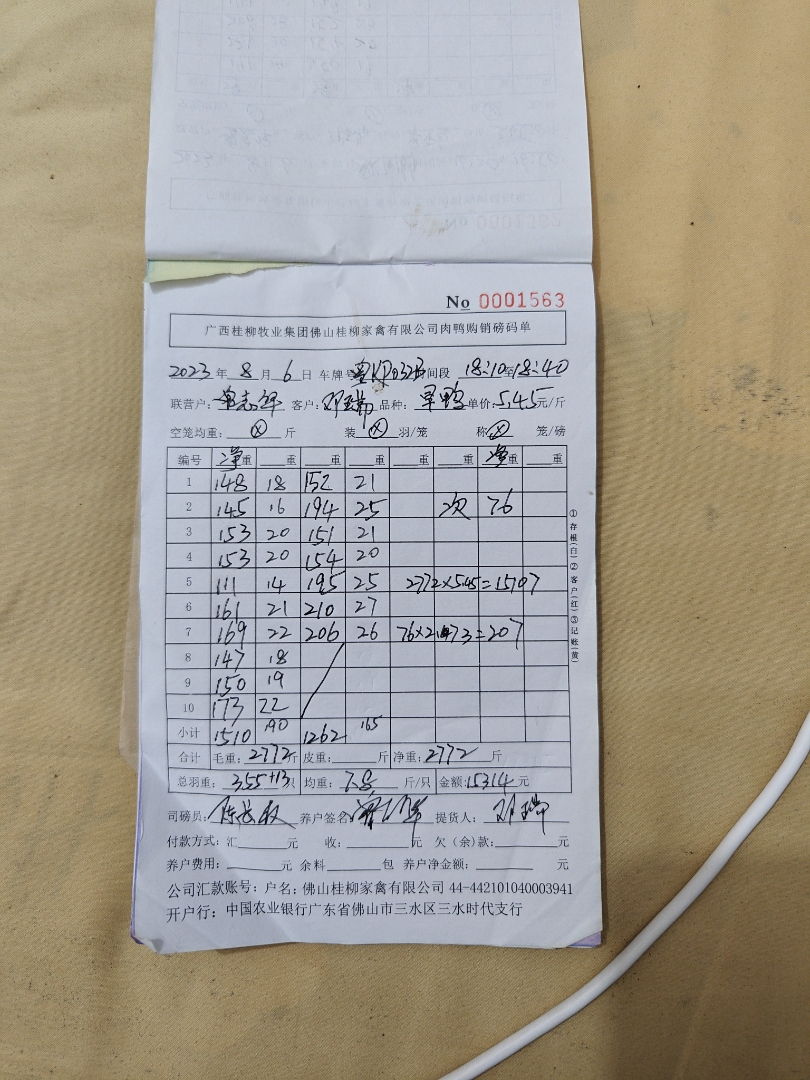 No 0001563
广西桂柳牧业集团佛山桂柳家禽有限公司肉鸭购销磅码单
2023 年 8 月 6 日 车牌号 间段 18:10至18:40
联营户: 客户:邓瑞 品种: 单价:5.45元/斤
空笼均重: ⊗ 斤 装 ⊗ 羽/笼 称 ⊗ 笼/磅
编号 净重 重 重 重 重 重 净重 重
1 148 18 152 21
2 145 16 194 25 次 76
3 153 20 151 21
4 153 20 154 20
5 111 14 195 25 2772×5.45=15107
6 161 21 210 27
7 169 22 206 26 =207
8 147 18
9 150 19
10 173 22
小计 1510 190 1262 165
合计 毛重:2772斤 皮重: 斤 净重:2772 斤
总羽重:355+13只 均重:7.8 斤/只 金额:15314元
司磅员: 养户签名: 提货人:邓瑞
付款方式:汇 元 收: 元 欠(余)款: 元
养户费用: 元 余料 包 养户净金额: 元
公司汇款账号:户名:佛山桂柳家禽有限公司 44-442101040003941
开户行:中国农业银行广东省佛山市三水区三水时代支行
①存根(白)②客户(红)③记账(黄)